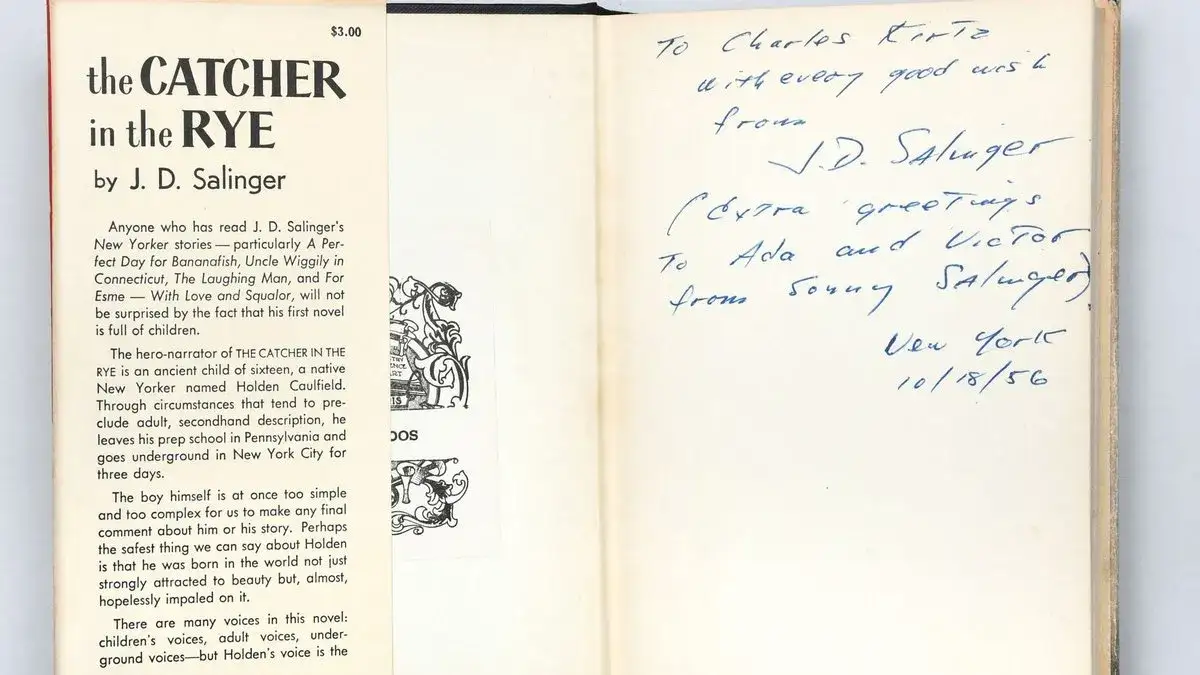 $3.00
the CATCHER
in the RYE
by J. D. Salinger
Anyone who has read J. D. Salinger's
New Yorker stories — particularly A Per-
fect Day for Bananafish, Uncle Wiggily in
Connecticut, The Laughing Man, and For
Esme — With Love and Squalor, will not
be surprised by the fact that his first novel
is full of children.
The hero-narrator of THE CATCHER IN THE
RYE is an ancient child of sixteen, a native
New Yorker named Holden Caulfield.
Through circumstances that tend to pre-
clude adult, secondhand description, he
leaves his prep school in Pennsylvania and
goes underground in New York City for
three days.
The boy himself is at once too simple
and too complex for us to make any final
comment about him or his story. Perhaps
the safest thing we can say about Holden
is that he was born in the world not just
strongly attracted to beauty but, almost,
hopelessly impaled on it.
There are many voices in this novel:
children's voices, adult voices, under-
ground voices—but Holden's voice is the
DOS
To Charles Kirtz
with every good wish
from
J.D. Salinger
(Extra greetings
To Ada and Victor
from Sonny Salinger)
New York
10/18/56